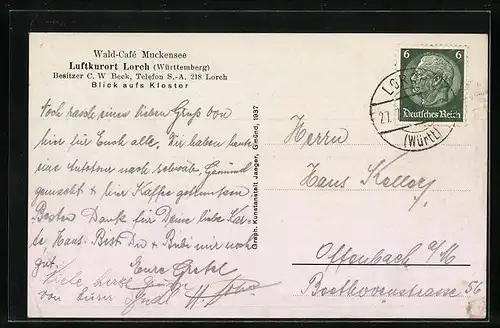 Wald-Café Muckensee
Luftkurort Lorch (Württemberg)
Besitzer C. W. Beck, Telefon S.-A. 218 Lorch
Blick aufs Kloster
Noch rasch einen lieben Gruß von
hier für Euch alle. Wir haben heute
eine Autotour nach schwäb. Gmünd
gemacht & hier Kaffee getrunken.
Besten Dank für Deine liebe Kar-
te, Hans. Bist Du & Rudi mir noch
gut.
Eure Gretel
Viele herzl. Grüße
von Eurer
Graph. Kunstanstalt Jaeger, Gmünd, 1937
6 6
Deutsches Reich
LOR
27.
(Württ)
Herrn
Hans Kellery
Offenbach a/M
Beethovenstrasse 56